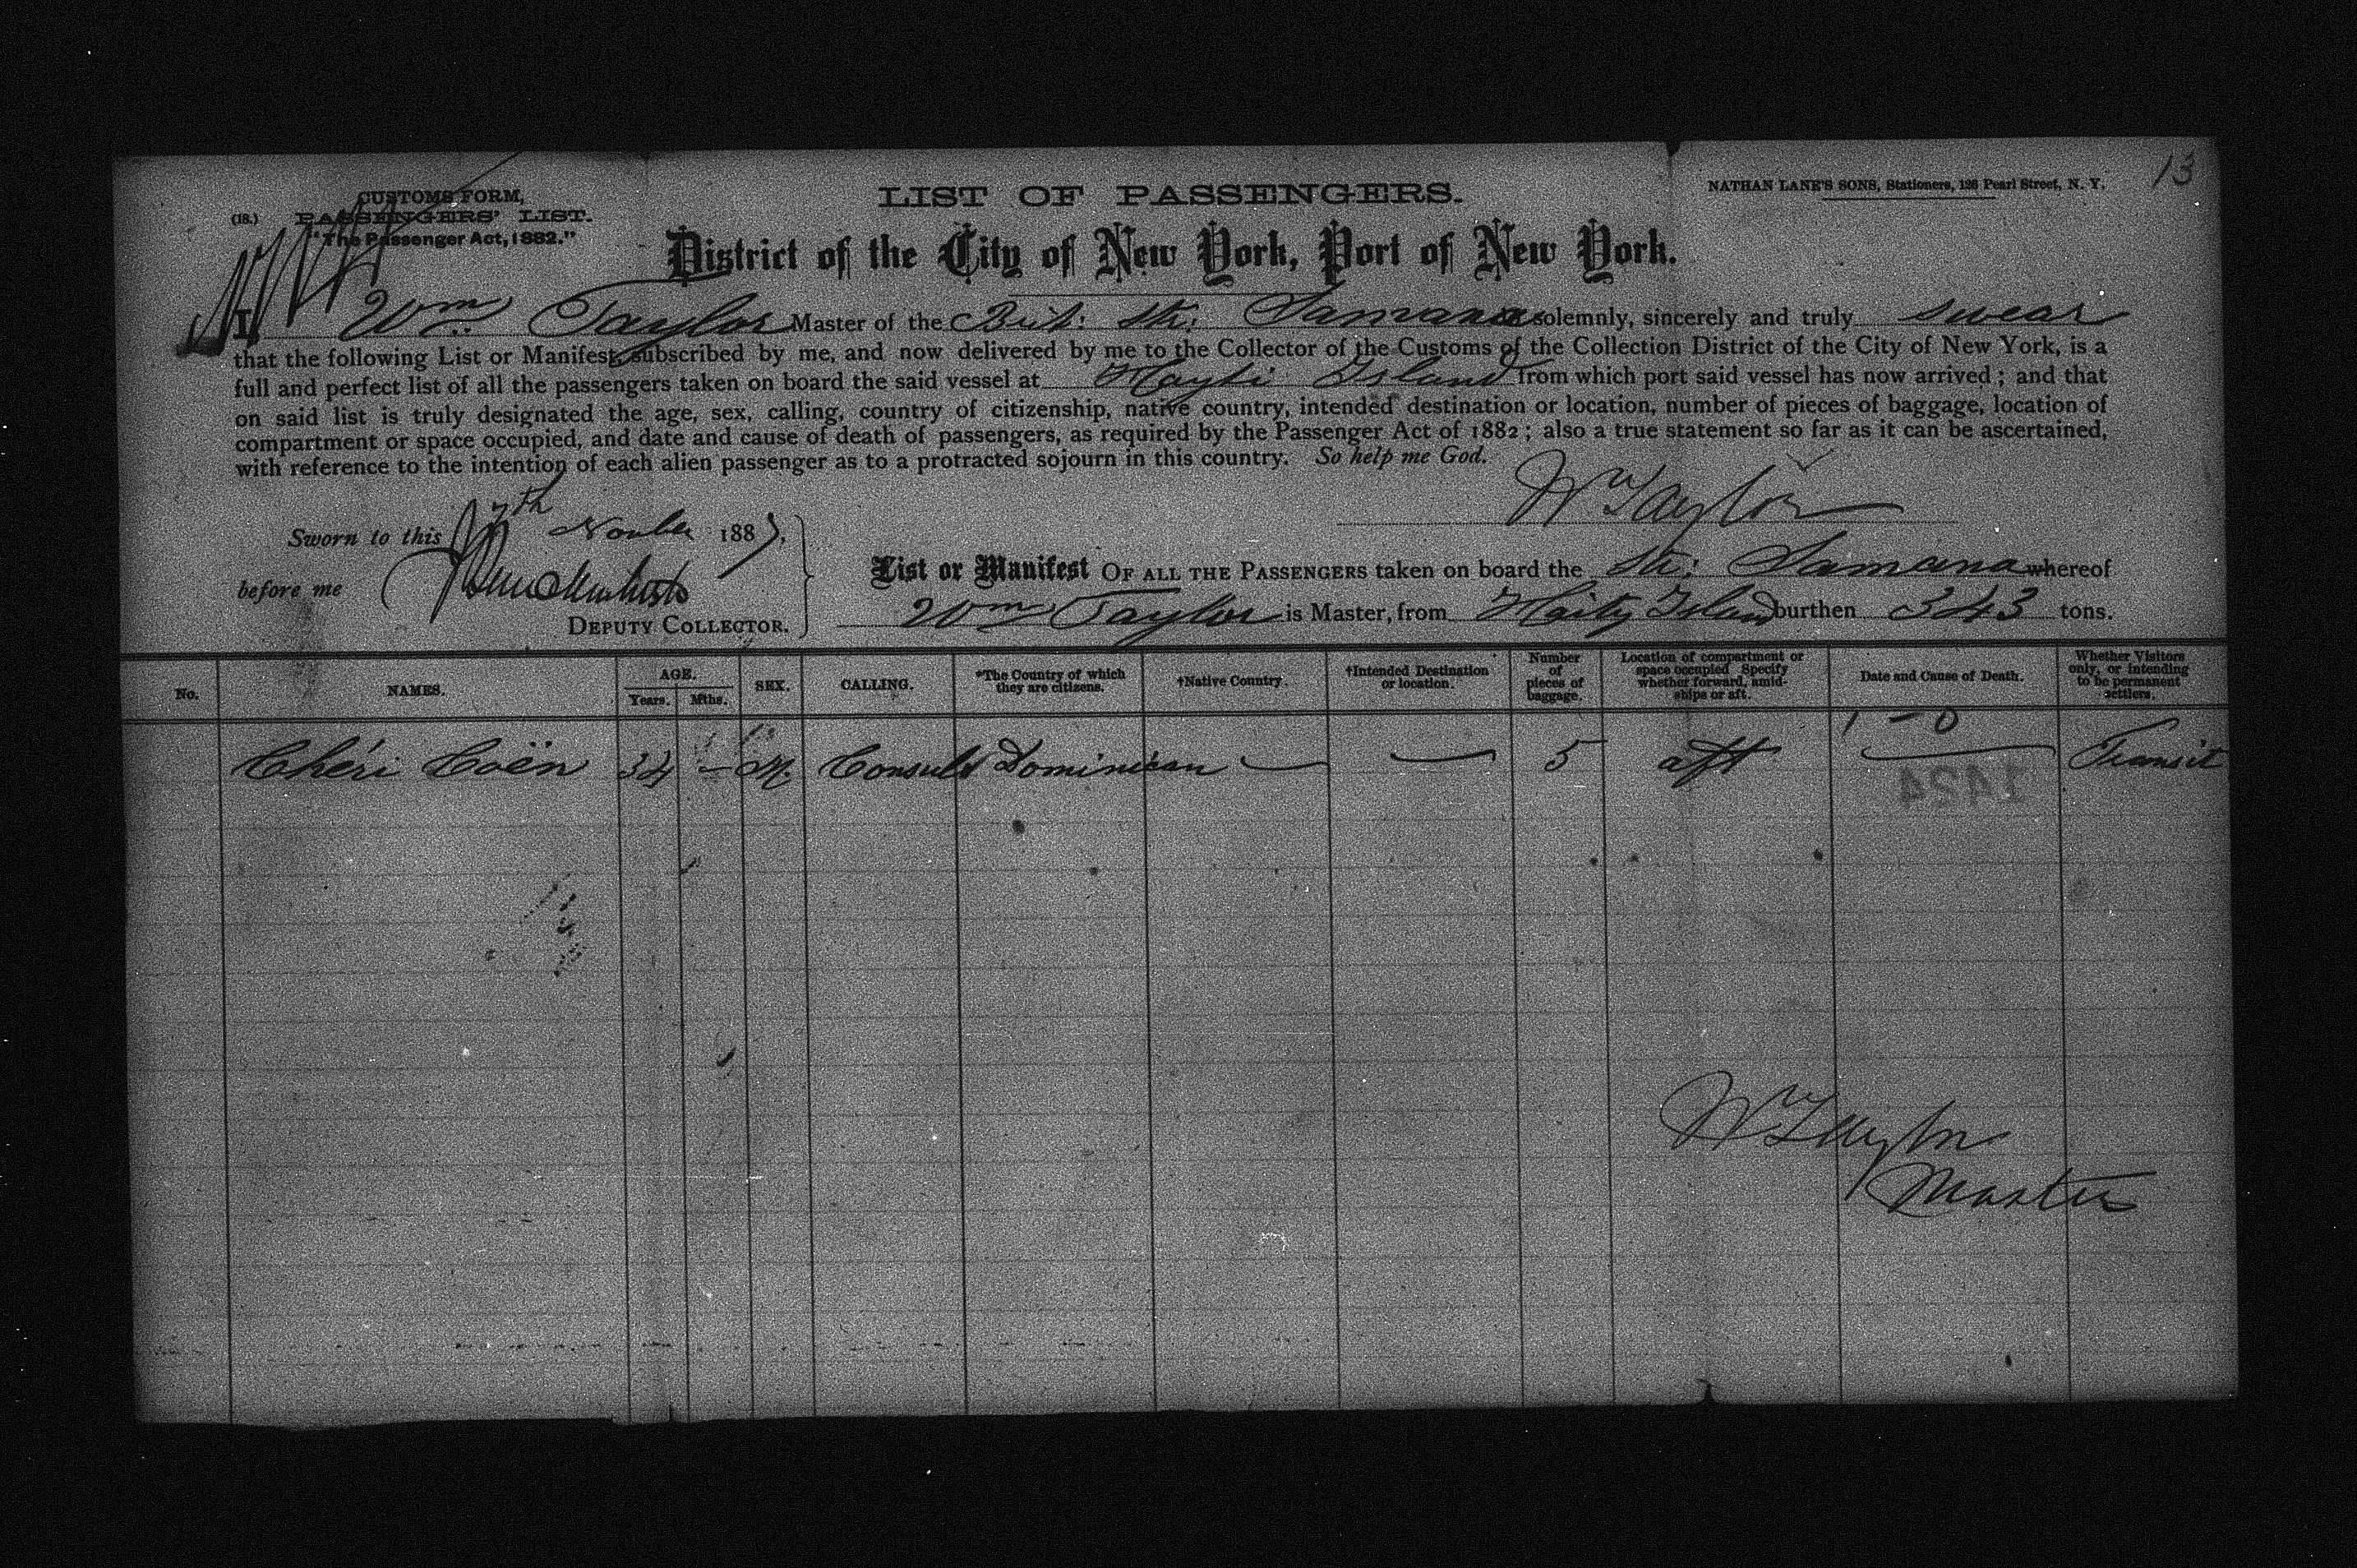 13
CUSTOMS FORM,
(18.) PASSENGERS' LIST.
"The Passenger Act, 1882."
LIST OF PASSENGERS.
NATHAN LANE'S SONS, Stationers, 126 Pearl Street, N. Y.
District of the City of New York, Port of New York.
I, Wm Taylor Master of the Brit: Str: Samana solemnly, sincerely and truly swear
that the following List or Manifest, subscribed by me, and now delivered by me to the Collector of the Customs of the Collection District of the City of New York, is a
full and perfect list of all the passengers taken on board the said vessel at Hayti Island from which port said vessel has now arrived; and that
on said list is truly designated the age, sex, calling, country of citizenship, native country, intended destination or location, number of pieces of baggage, location of
compartment or space occupied, and date and cause of death of passengers, as required by the Passenger Act of 1882; also a true statement so far as it can be ascertained,
with reference to the intention of each alien passenger as to a protracted sojourn in this country. So help me God.
Wm Taylor
Sworn to this 17th 1887,
before me
DEPUTY COLLECTOR.
List or Manifest OF ALL THE PASSENGERS taken on board the Str: Samana whereof
Wm Taylor is Master, from Haity Island burthen 343 tons.
No. NAMES. AGE. Years. Mths. SEX. CALLING. *The Country of which they are citizens. †Native Country. †Intended Destination or location. Number of pieces of baggage. Location of compartment or space occupied. Specify whether forward, amidships or aft. Date and Cause of Death. Whether Visitors only, or intending to be permanent settlers.
1 - 0
Chéri Coën 34 - M. Consul Dominican — — 5 aft — Transit
1424
Wm Taylor
Master